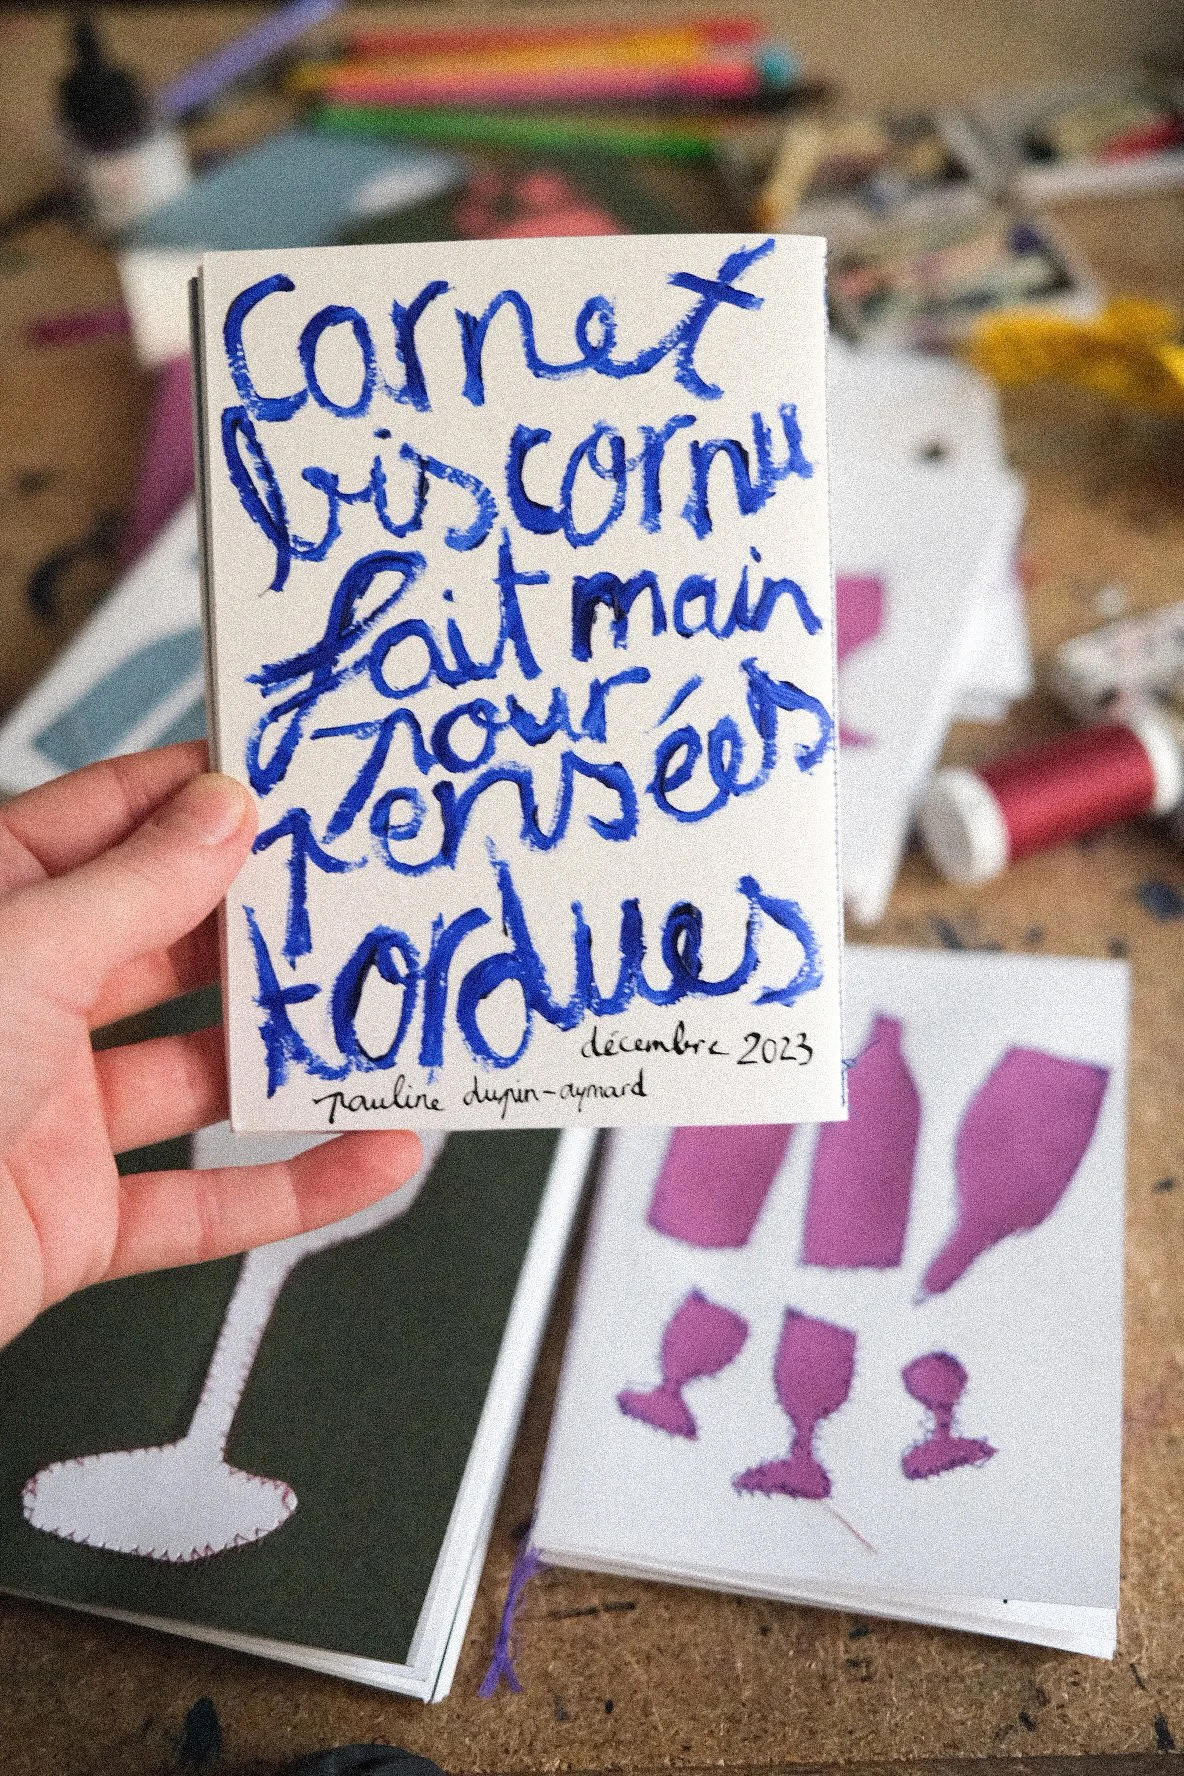 Carnet
biscornu
fait main
pour
pensées
tordues
décembre 2023
pauline dupin-aymard